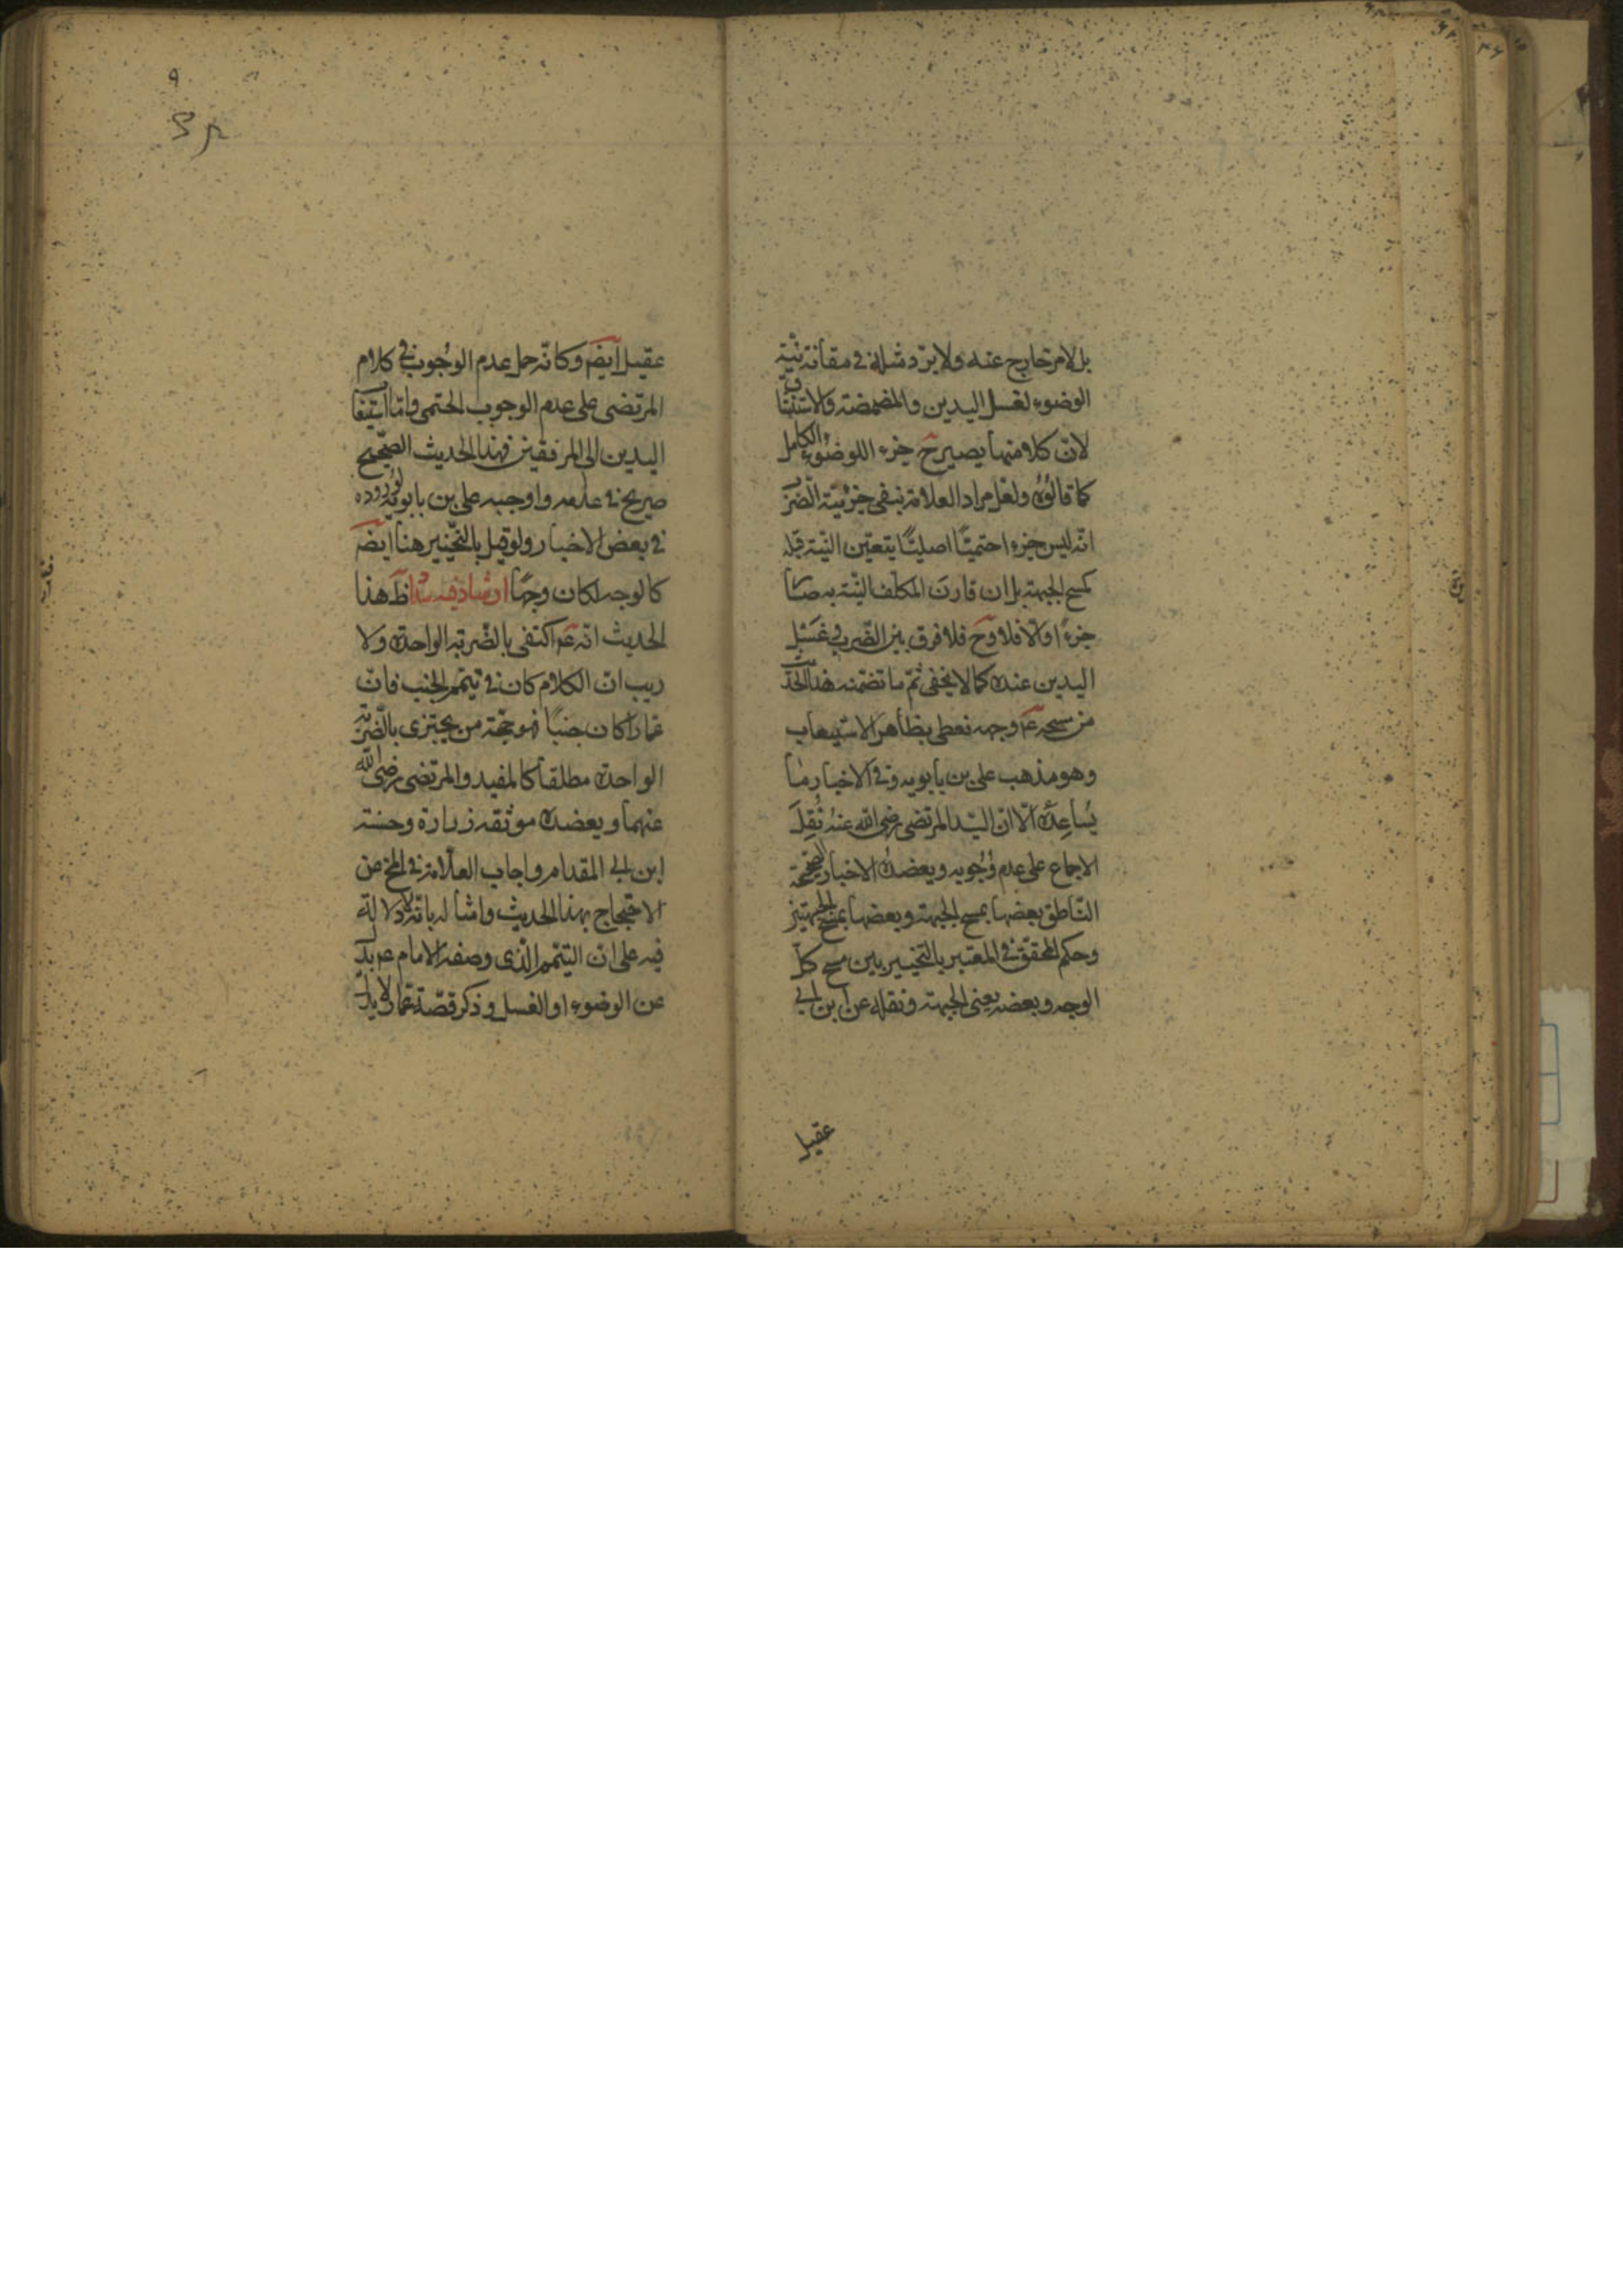 بل لامر خارج عنه ولا يرد مثله في مقارنة نية
الوضوء لغسل اليدين والمضمضة والاستنشاق
لان كلا منها يصير ح جزء اللوضوء الكامل
كما قالوه ولعل مراد العلامة بنفي جزئية الضرب
انه ليس جزءا حتميّا اصليّا يتعين النية قبله
كمسح الجبهة بل ان قارن المكلف النية به صار
جزءًا والا فلا وح فلا فرق بين الضرب وغسل
اليدين عنده كما لا يخفى ثم ما تضمنه هذا الحديث
من مسحه عم وجهه يعطي بظاهره الاستيعاب
وهو مذهب علي بن بابويه وفي الاخبار ما
يُساعِدُه الّا ان السّيد المرتضى رضي الله عنهُ نُقِلَ
الاجماع على عدم وُجوبه ويعضده الاخبار الصحيحة
النّاطق بعضها بمسح الجبهة وبعضها بمسح الجبهتين
وحكم المحقق في المعتبر بالتخيير بين مسح كلّ
الوجه وبعضه يعني الجبهة ونقله عن ابن ابي
عقيل
عقيل ايضَ وكانّه حمل عدم الوجُوب في كلام
المرتضى على عدم الوجوب الحتمي وامّا استيعاب
اليدين الى المرفقين فهذا الحديث الصّحيح
صريح في عدمه واوجبه علي بن بابويه لوروده
في بعض الاخبار ولو قيل بالتّخيير هنا ايضَ
كالوجه لكان وجهًا ارشاد فيه سداد ظَ هذا
الحديث انّه عم اكتفى بالضّربة الواحدة ولا
ريب ان الكلام كان في تيمّم الجنب فانّ
عمارا كان جنبًا فهو حجّة من يجتزي بالضّربة
الواحدة مطلقًا كالمفيد والمرتضى رضي الله
عنهما ويعضده موثقه زرارة وحسنة
ابن ابي المقدام واجاب العلّامة في المخ عن
الاحتجاج بهذا الحديث وامثاله بانّه لا دلالة
فيه على ان التيمّم الّذي وصفه الامام عم بدل
عن الوضوء او الغسل وذكر قصّة عمّار لا يدل